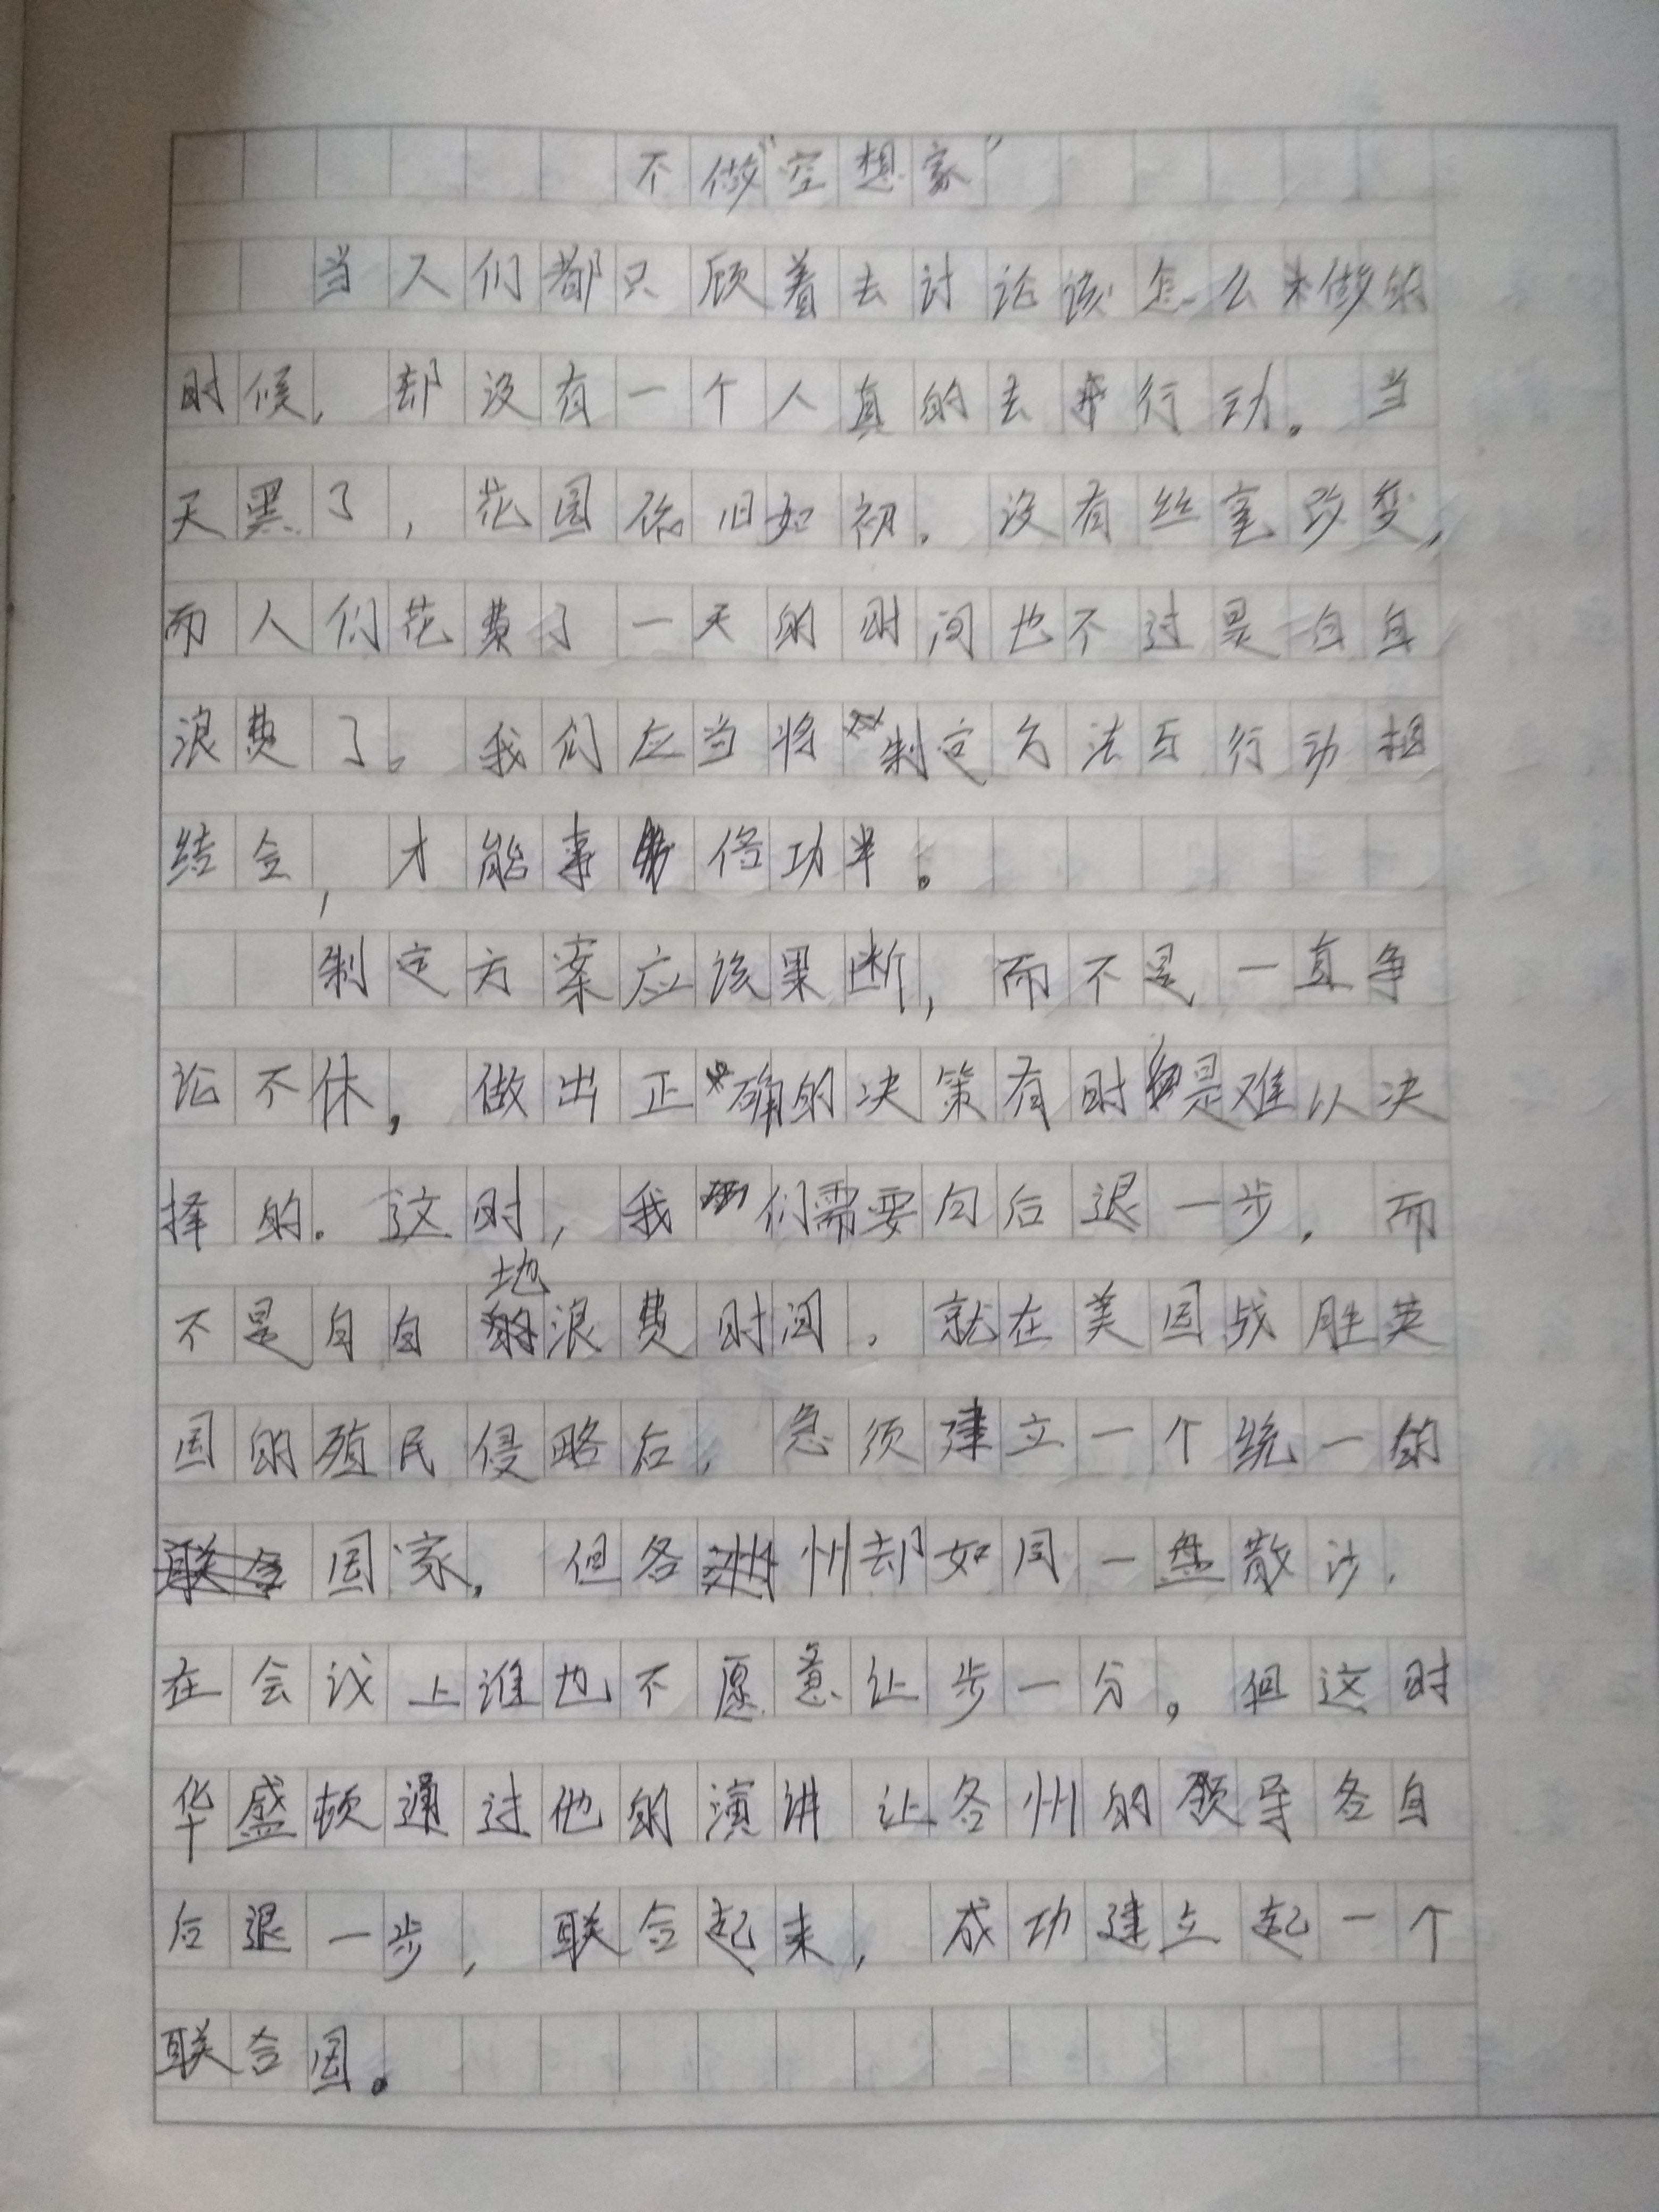 不做“空想家”
当人们都只顾着去讨论该怎么做的
时候，却没有一个人真的去行动。当
天黑了，花园依旧如初。没有丝毫改变，
而人们花费了一天的时间也不过是白白
浪费了。我们应当将制定方法与行动相
结合，才能事倍功半。
制定方案应该果断，而不是一直争
论不休，做出正确的决策有时是难以决
择的。这时，我们需要向后退一步，而
不是白白地浪费时间。就在美国战胜英
国的殖民侵略后，急须建立一个统一的
国家，但各州却如同一盘散沙，
在会议上谁也不愿意让步一分，但这时
华盛顿通过他的演讲让各州的领导各自
后退一步，联合起来，成功建立起一个
联合国。